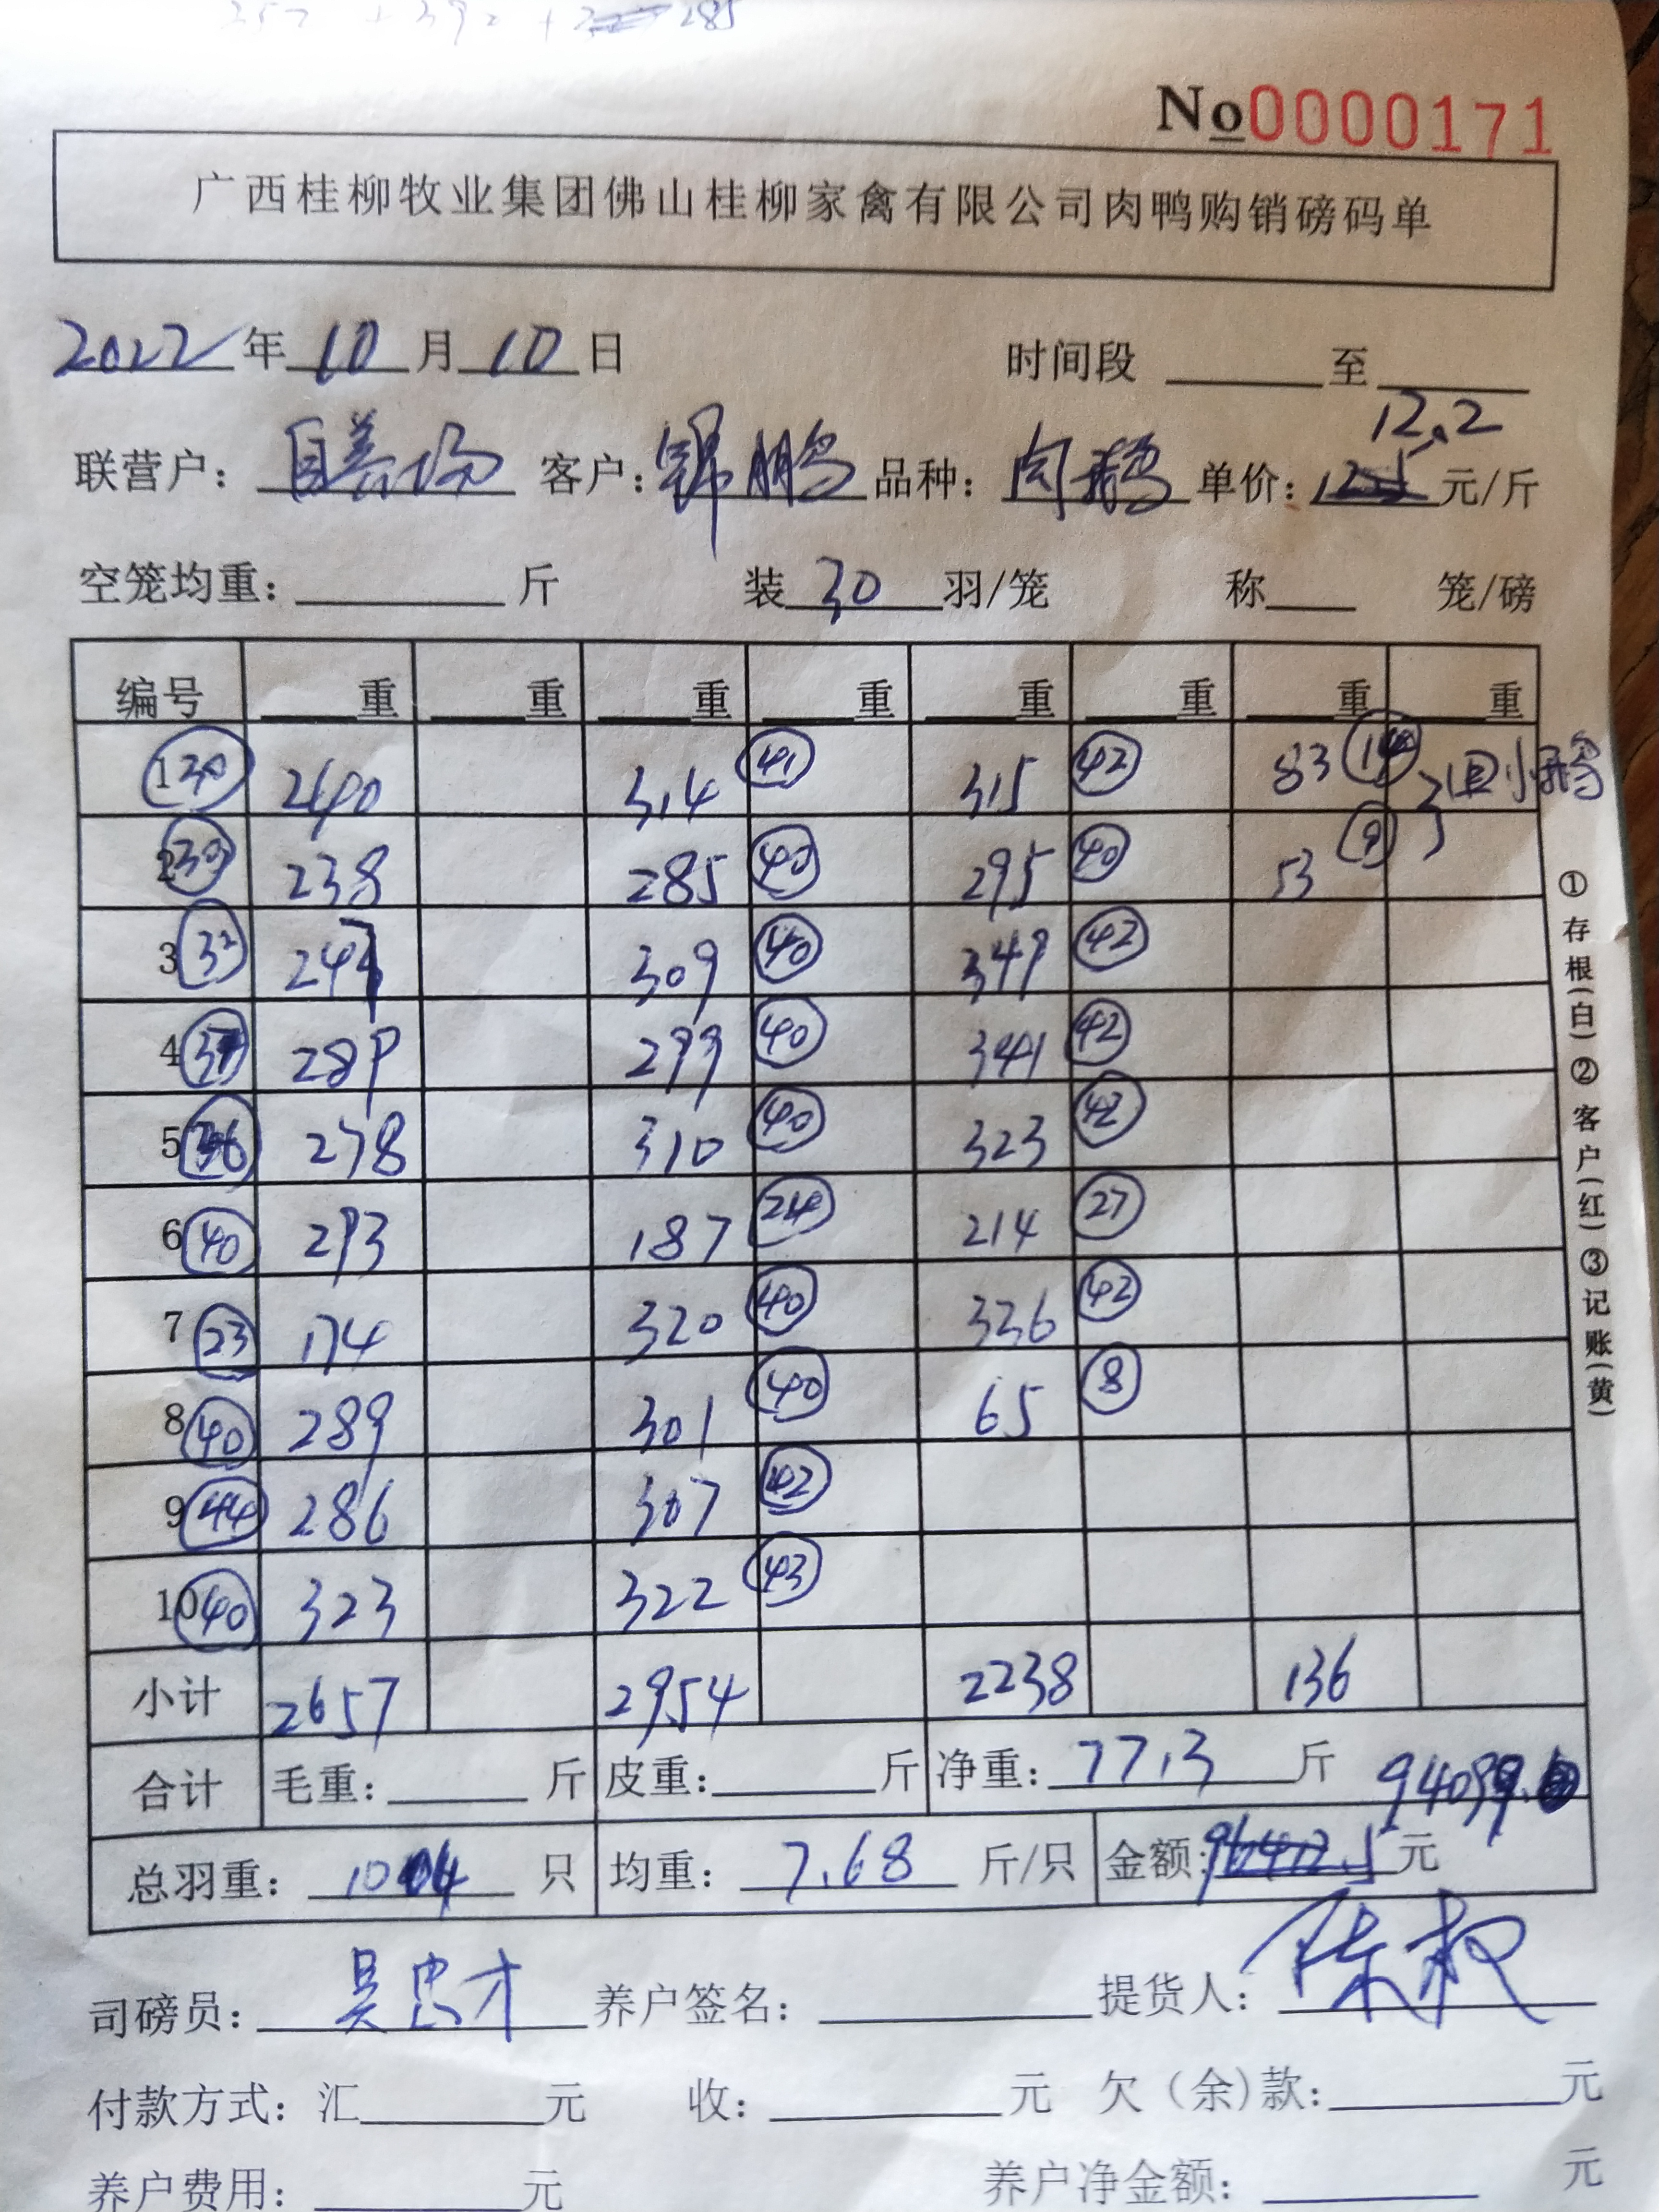 No0000171
广西桂柳牧业集团佛山桂柳家禽有限公司肉鸭购销磅码单
2022年10月10日 时间段 至
12.2
联营户：自养场 客户：锦鹏 品种：肉鹅 单价： 元/斤
空笼均重： 斤 装30羽/笼 称 笼/磅
编号 重 重 重 重 重 重 重 重
1 30 240 314 41 315 42 83 2只小鹅
2 30 238 285 40 295 40 53 9
3 32 247 309 40 349 42
4 289 299 40 341 42
5 36 278 310 40 323 42
6 40 293 187 24 214 27
7 23 174 320 40 336 42
8 40 289 301 40 65 8
9 44 286 307 42
10 40 323 322 43
小计 2657 2954 2238 136
合计 毛重： 斤 皮重： 斤 净重：7713斤
总羽重：1004只 均重：7.68斤/只 金额： 元
司磅员：吴忠才 养户签名： 提货人：
付款方式：汇 元 收： 元 欠（余）款： 元
养户费用： 元 养户净金额： 元
①存根（白）②客户（红）③记账（黄）